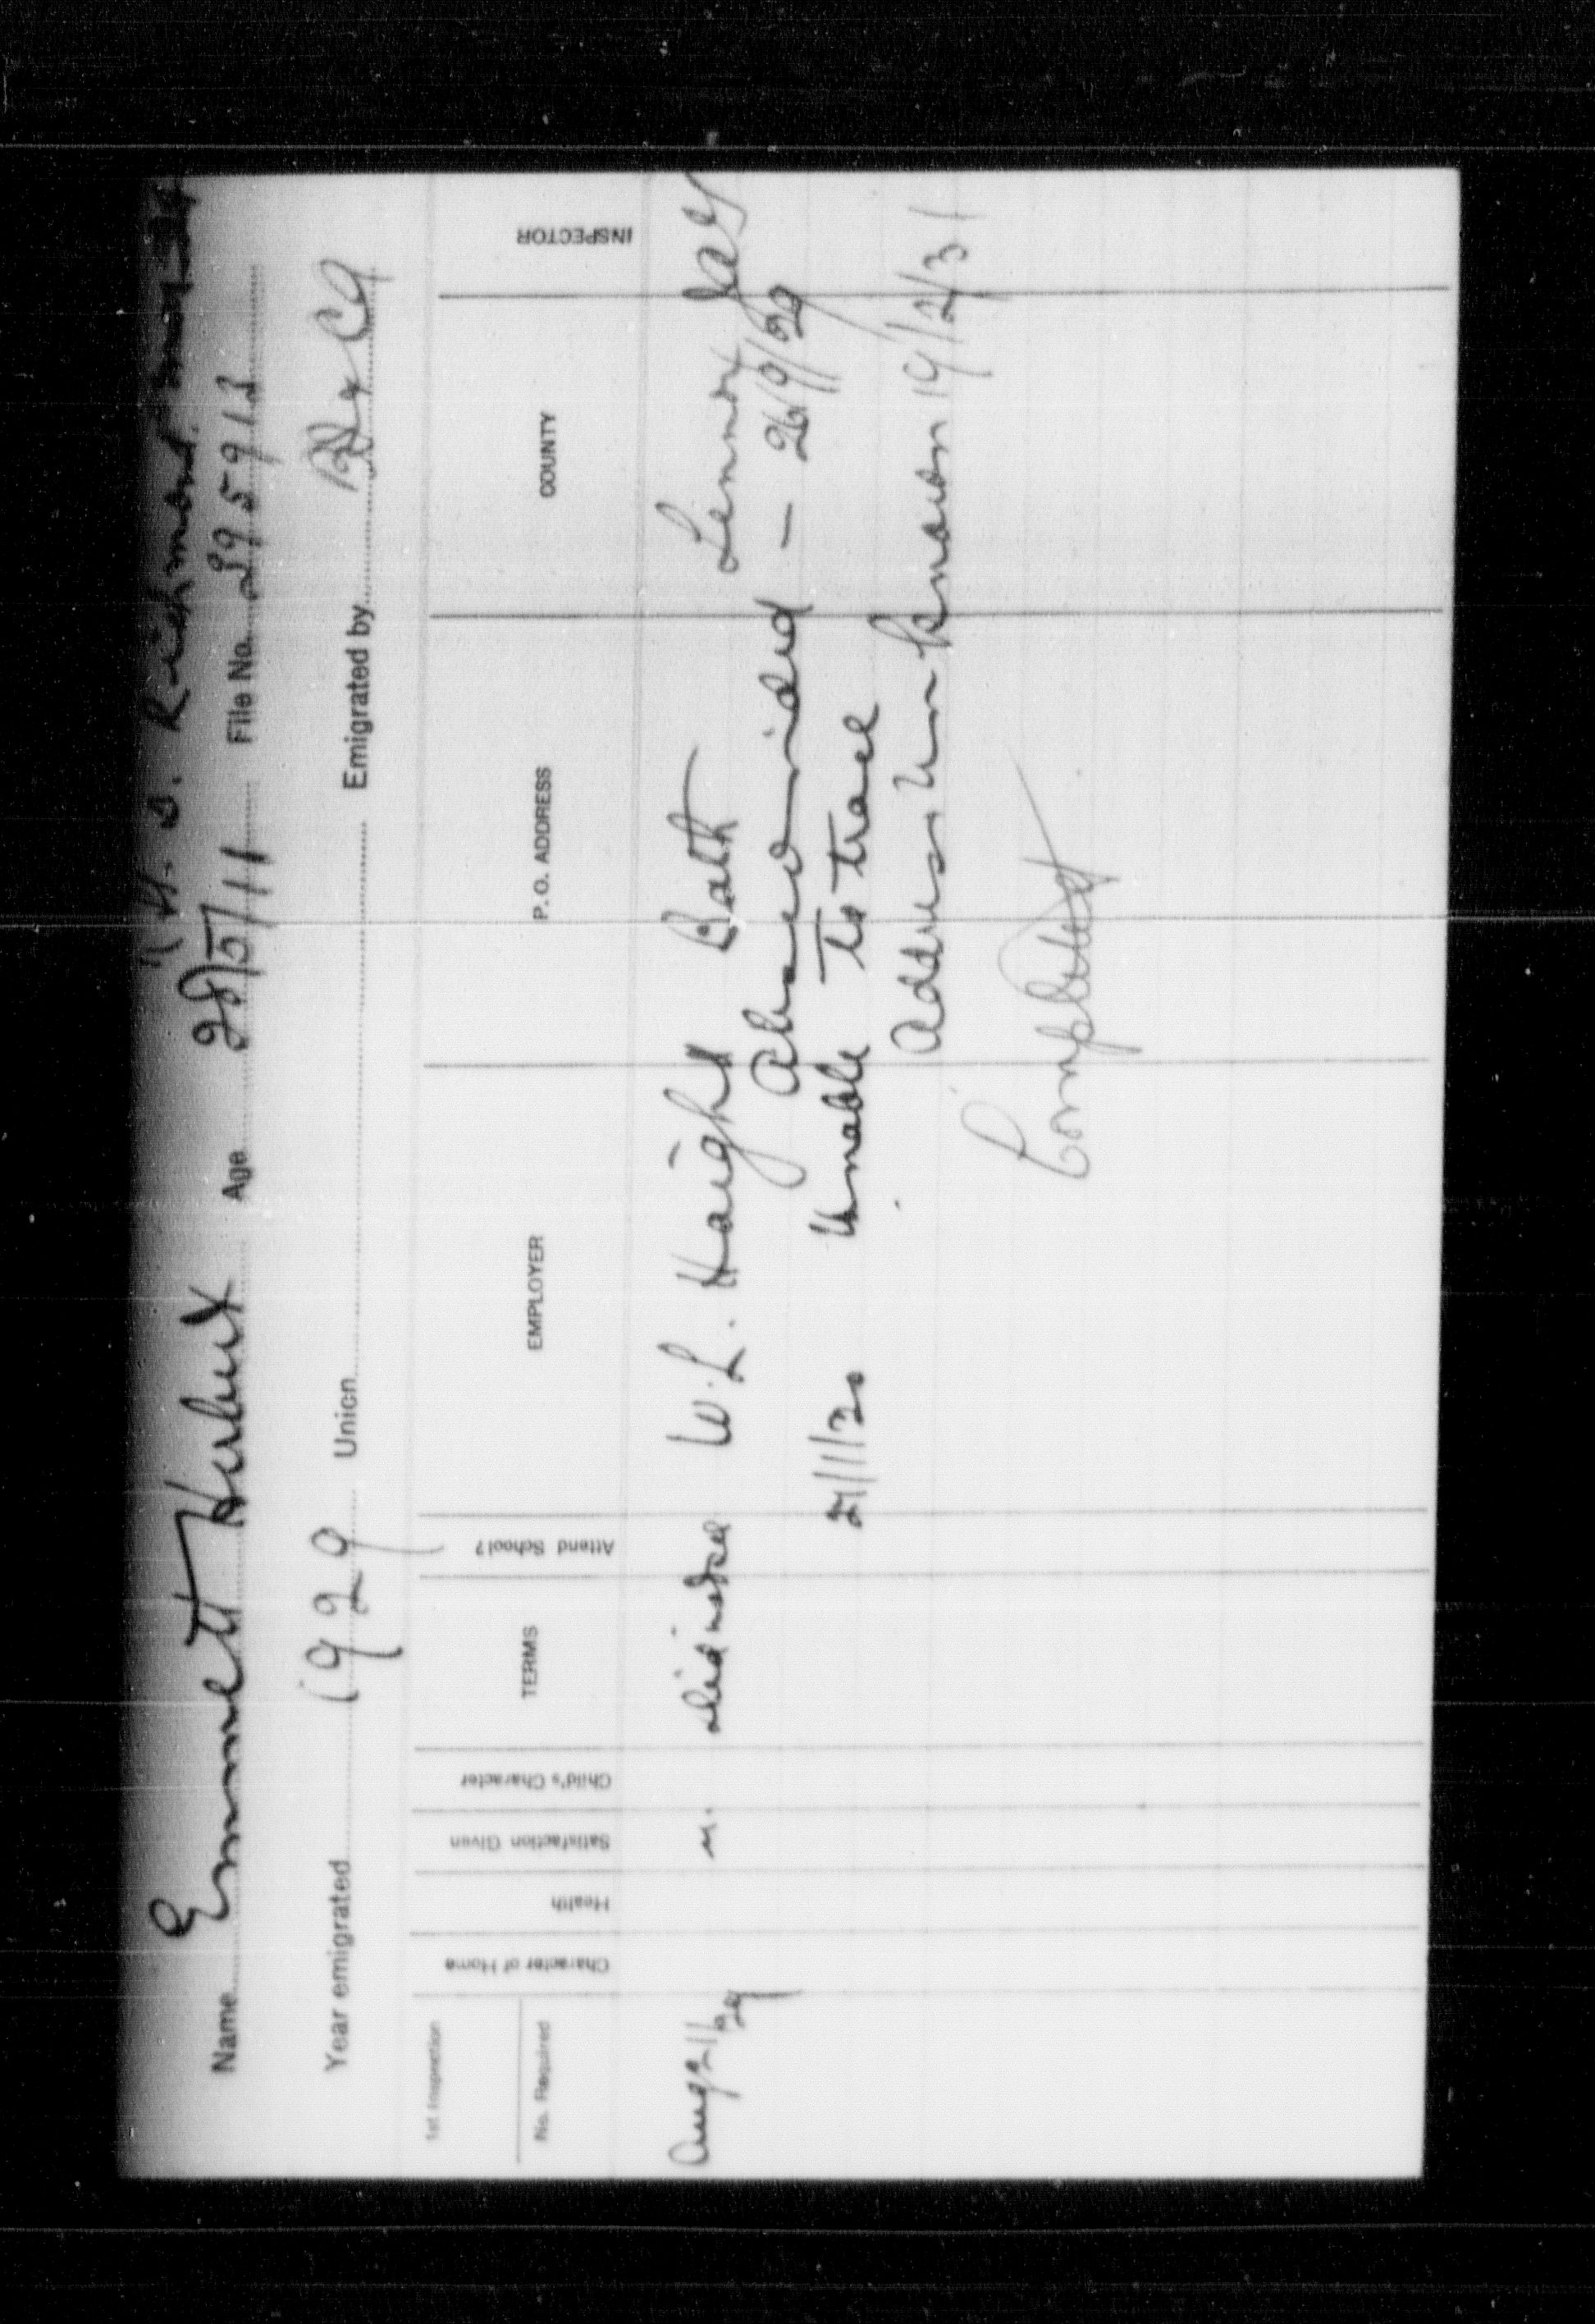 S.S. Richmond
Name Emmett Herbert Age 28/5/11 File No. 295912
Year emigrated 1929 Union Emigrated by
1st Inspection
No. Required Character of Home Health Satisfaction Given Child's Character TERMS Attend School? EMPLOYER P. O. ADDRESS COUNTY INSPECTOR
Aug 21/29 W. L. Haight Bath Lennox
Absconded — 26/9/29
21/1/30 Unable to trace
Address Unknown 19/2/31
Completed